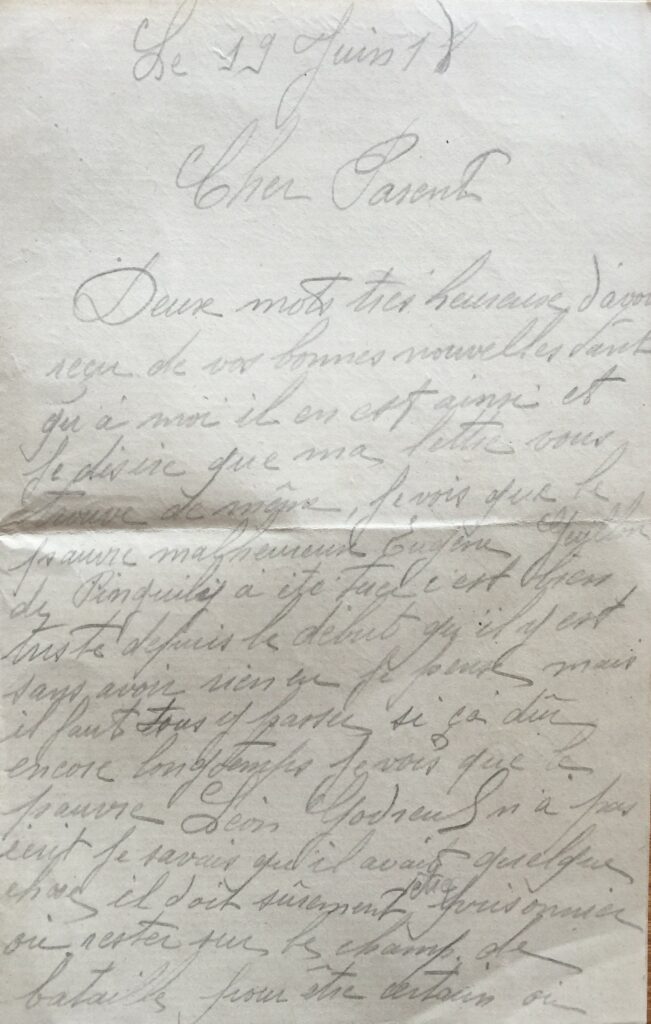 Le 19 Juin 18
Cher Parent
Deux mots tres heureuse d'avoir
reçu de vos bonnes nouvelles dant
qu'à moi il en est ainsi et
Je désire que ma lettre vous
trouve de même, Je vois que le
pauvre malheureux Eugène
de Pinguily à été tué c'est bien
triste depuis le début qu'il y est
sans avoir rien eu Je pense mais
il faut tous y passer si ça dûr
encore longtemps Je vois que le
pauvre Léon Godreul n'à pas
écrit Je savais qu'il avait quelque
chose il doit sûrement être prisonnier
où rester sur le champ de
bataille pour être certain où